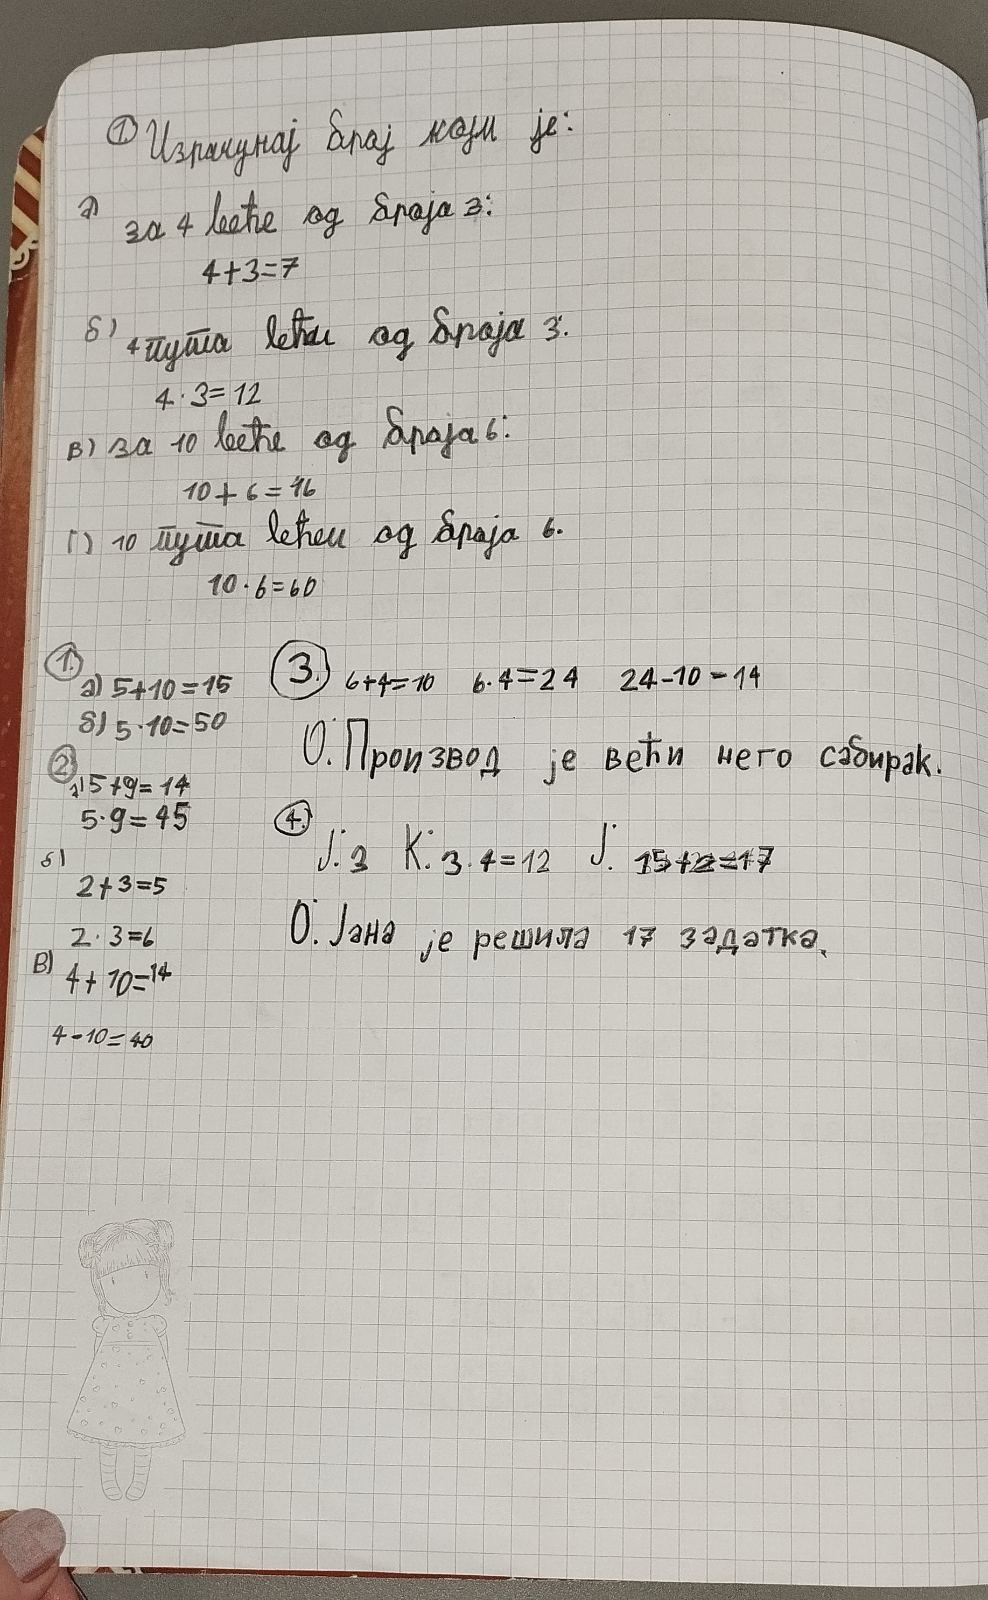 ① Израчунај број који је:
а) за 4 веће од броја 3:
4+3=7
б) 4 пута већи од броја 3.
4·3=12
в) за 10 веће од броја 6:
10+6=16
г) 10 пута већи од броја 6.
10·6=60
1.
а) 5+10=15
б) 5·10=50
2.
а) 5+9=14
5·9=45
б)
2+3=5
2·3=6
в) 4+10=14
4-10=40
3. 6+4=10 6·4=24 24-10=14
О. Производ је већи него сабирак.
4.
Ј. 3 К. 3·4=12 Ј. 15+2=17
О. Јана је решила 17 задатка.